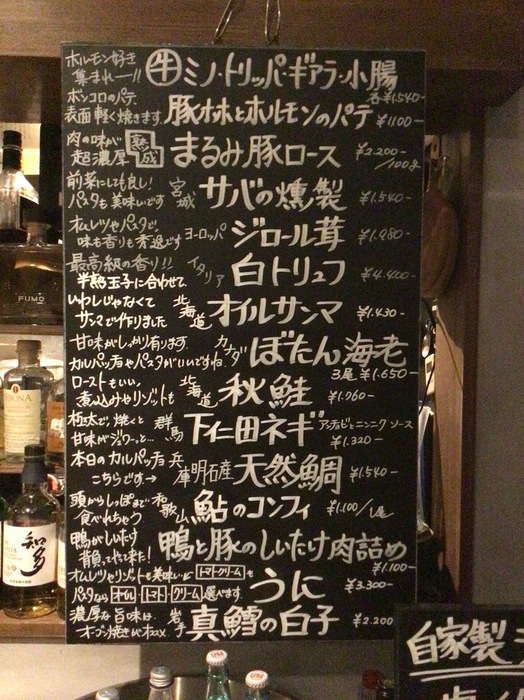 ホルモン好き
集まれー!!
牛ミノ・トリッパ・ギアラ・小腸
各¥1.540-
ポンコロのパテ、
表面軽く焼きます。
豚ホホとホルモンのパテ ¥1100-
肉の味が
超濃厚
熟成
まるみ豚ロース ¥2.200-/100g
前菜にしても良し!
パスタも美味いです
宮城
サバの燻製 ¥1.540-
オムレツやパスタで
味も香りも秀逸です
ヨーロッパ
ジロール茸 ¥1.980-
最高級の香り!!
半熟玉子に合わせて
イタリア
白トリュフ ¥4.400-
いわしじゃなくて
サンマで作りました
北海道
オイルサンマ ¥1.430-
甘味がしっかり有ります
カルパッチョやパスタがいいですね
カナダ
ぼたん海老
3尾¥1.650-
ローストもいい、
煮込みやリゾットも
北海道
秋鮭 ¥1.760-
極太で、焼くと
甘味がジワーッと…
群馬
下仁田ネギ
アンチョビとニンニクソース
¥1.320-
本日のカルパッチョ
こちらです→
兵庫
明石産
天然鯛 ¥1.540-
頭からしっぽまで
食べれちゃう
和歌山
鮎のコンフィ ¥1.100-/1尾
鴨がしいたけ
背負ってやって来た!
鴨と豚のしいたけ肉詰め
¥1.100-
オムレツやリゾットも美味い トマトクリームも
パスタなら オイル・トマト・クリーム 選べます。
うに ¥3.300-
濃厚な旨味は、
オーブン焼きがオススメ
岩手
真鱈の白子 ¥2.200-
自家製
FUMO
知多